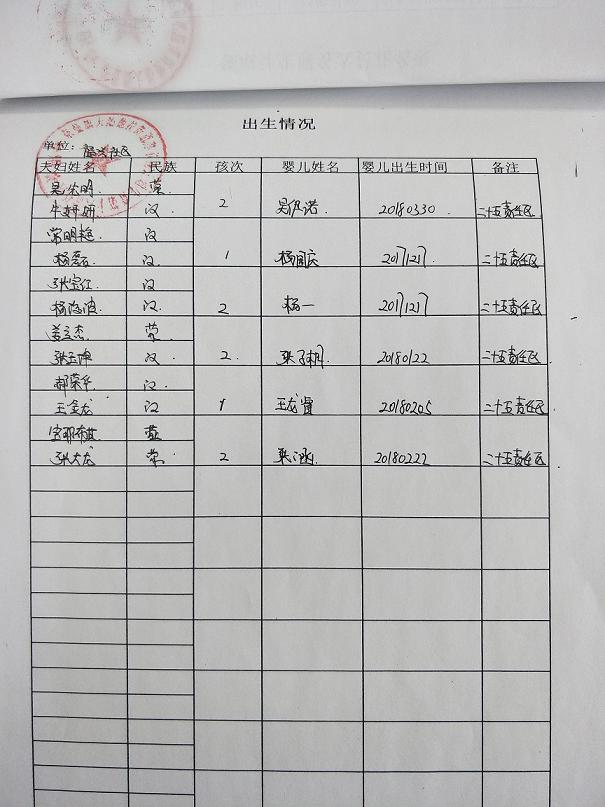 出生情况
单位: 社区
夫妇姓名 民族 孩次 婴儿姓名 婴儿出生时间 备注
明 蒙
牛妍妍 汉 2 吴伊诺 20180330 二十五责任区
常明艳 汉
杨磊 汉 1 杨国庆 20171217 二十五责任区
张宝江 汉
杨海波 汉 2 杨一 20171217 二十五责任区
姜立杰 蒙
张玉坤 汉 2 张子 20180122 二十五责任区
郝荣华 汉
王金龙 汉 1 王龙 20180205 二十五责任区
蒙
张大龙 蒙 2 涵 20180222 二十五责任区